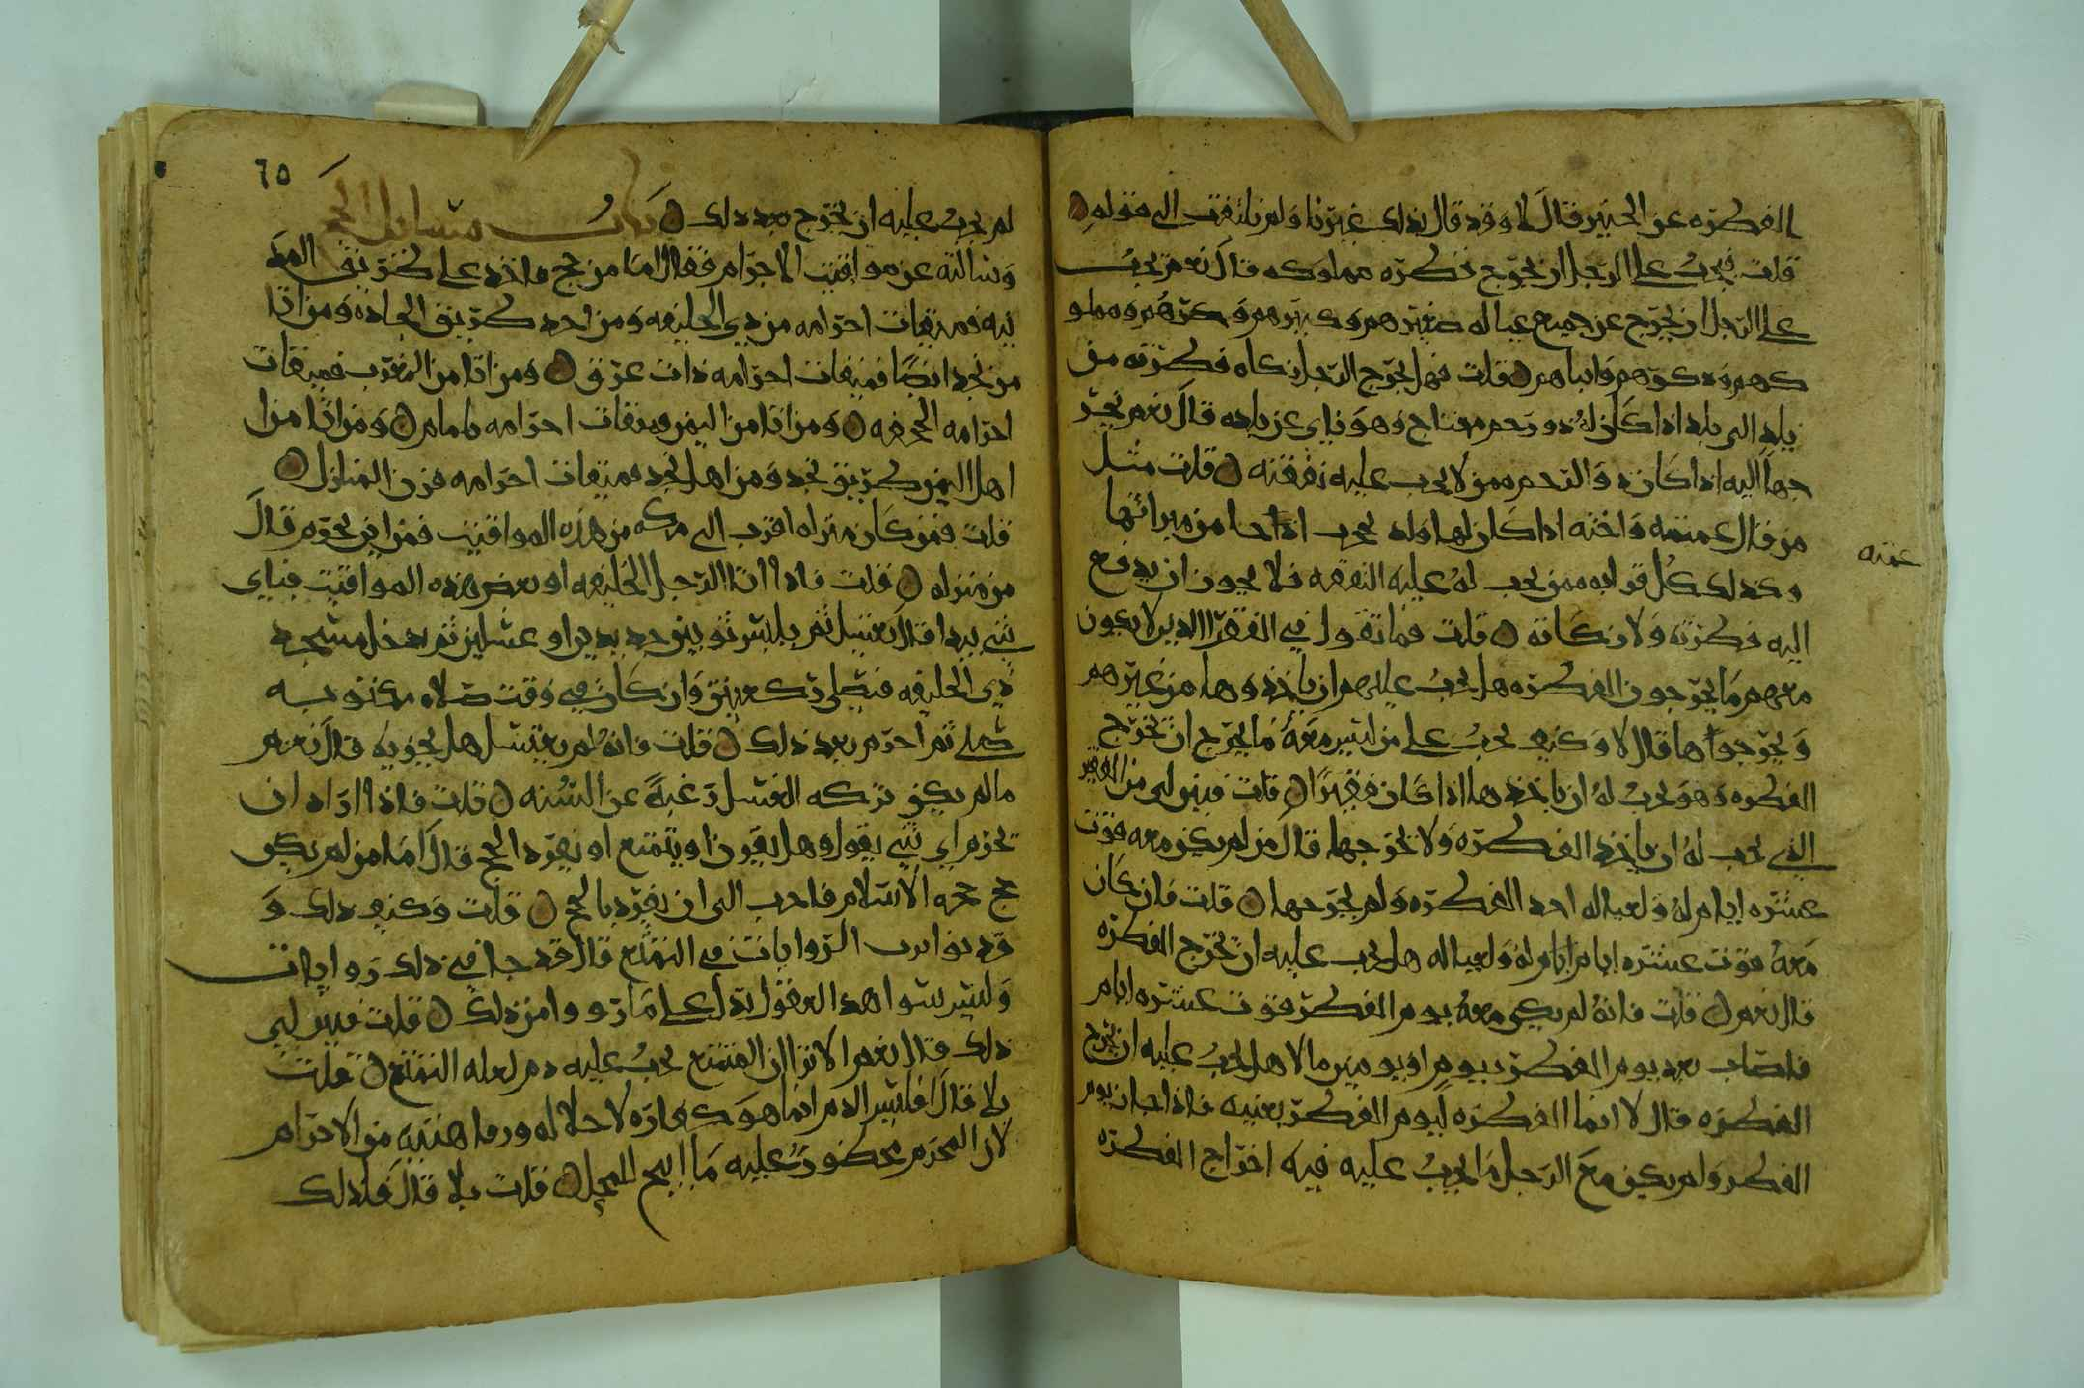 الفطره عن الجنين قال لا وقد قال بذلك غيرنا ولم نلتفت الى قوله
قلت فيجب على الرجل ان يخرج فطره مملوكه قال نعم يجب
على الرجل ان يخرج عن جميع عياله صغيرهم وكبيرهم وحرهم ومملو
كهم وذكرهم وانثاهم قلت فهل يخرج الرجل زكاه فطرته من
بلد الى بلد اذا كان له ذو رحم محتاج وهو ناي عن بلده قال نعم يخر
جها اليه اذا كان ذو الرحم ممن لا يجب عليه نفقته قلت مثل
من قال عمته واخته اذا كان لها ولد يحجب اذا حا من ميراثها
وكذلك كل قرابه ممن يجب له عليه النفقه فلا يجوز ان يدفع
اليه فطرته ولا زكاته قلت فما تقول في الفقرا الذين لا يكون
معهم ما يخرجون الفطره هل يجب عليهم ان ياخذوها من غيرهم
ويخرجوها قال لا وكيف يجب على من ليس معه ما يخرج ان يخرج
الفطره وهو يجب له ان ياخذها اذا كان فقيرا قلت فبين لي من الفقير
الذي يجب له ان ياخذ الفطره ولا يخرجها قال من لم يكن معه قوت
عشره ايام له ولعياله اخذ الفطره ولم يخرجها قلت فان كان
معه قوت عشره ايام له ولعياله هل يجب عليه ان يخرج الفطره
قال نعم قلت فانه لم يكن معه يوم الفطر قوت عشره ايام
فاصاب بعد يوم الفطر بيوم او يومين مالا هل يجب عليه ان يخرج
الفطره قال لا انما الفطره ليوم الفطر بعينه فاذا حان يوم
الفطر ولم يكن مع الرجل ما يجب عليه فيه اخراج الفطره
عمته
٦٥
لم يجب عليه ان يخرج بعد ذلك باب مسائل الحج
وسالته عن مواقيت الاحرام فقال اما من حج فاخذ على طريق المد
ينه فميقات احرامه من ذي الحليفه ومن اخذ طريق الجاده ومن اتا
من نجد ايضا فميقات احرامه ذات عرق ومن اتا من المغرب فميقات
احرامه الجحفه ومن اتا من اليمن فميقات احرامه يلملم ومن اتا من ا
اهل اليمن طريق نجد ومن اهل نجد فميقات احرامه قرن المنازل
قلت فمن كان منزله اقرب الى مكه من هذه المواقيت فمن اين يحرم قال
من منزله قلت فاذا اتا الرجل الحليفه او بعض هذه المواقيت فباي
شي يبدا قال يغتسل ثم يلبس ثوبين جديدين او غسلين ثم يدخل مسجد
ذي الحليفه فيصلي ركعتين وان كان في وقت صلاه مكتوبه
صلى ثم احرم بعد ذلك قلت فانه لم يغتسل هل يجزيه قال نعم
ما لم يكن تركه الغسل رغبة عن السنه قلت فاذا اراد ان
يحرم اي شي يقول وهل يقرن او يتمتع او يفرد الحج قال اما من لم يكن
حج حجه الاسلام فاحب الى ان يفرد بالحج قلت وكيف ذلك و
قد تواترت الروايات في التمتع قال قد جا في ذلك روايات
وليس شواهد العقول تدل على ما رووا من ذلك قلت فبين لي
ذلك قال نعم الا ترا ان المتمتع يجب عليه دم لعله التمتع قلت
بلا قال افليس الدم انما هو كفاره لاحلاله ورما هنته من الاحرام
لان المحرم محظور عليه ما ابيح للمحل قلت بلا قال فلذلك